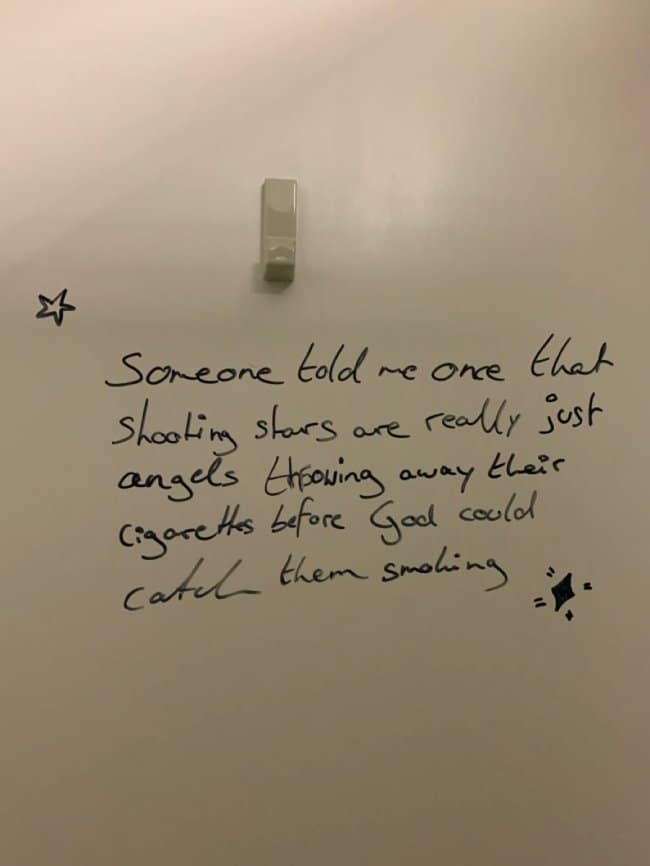 Someone told me once that
shooting stars are really just
angels throwing away their
cigarettes before God could
catch them smoking